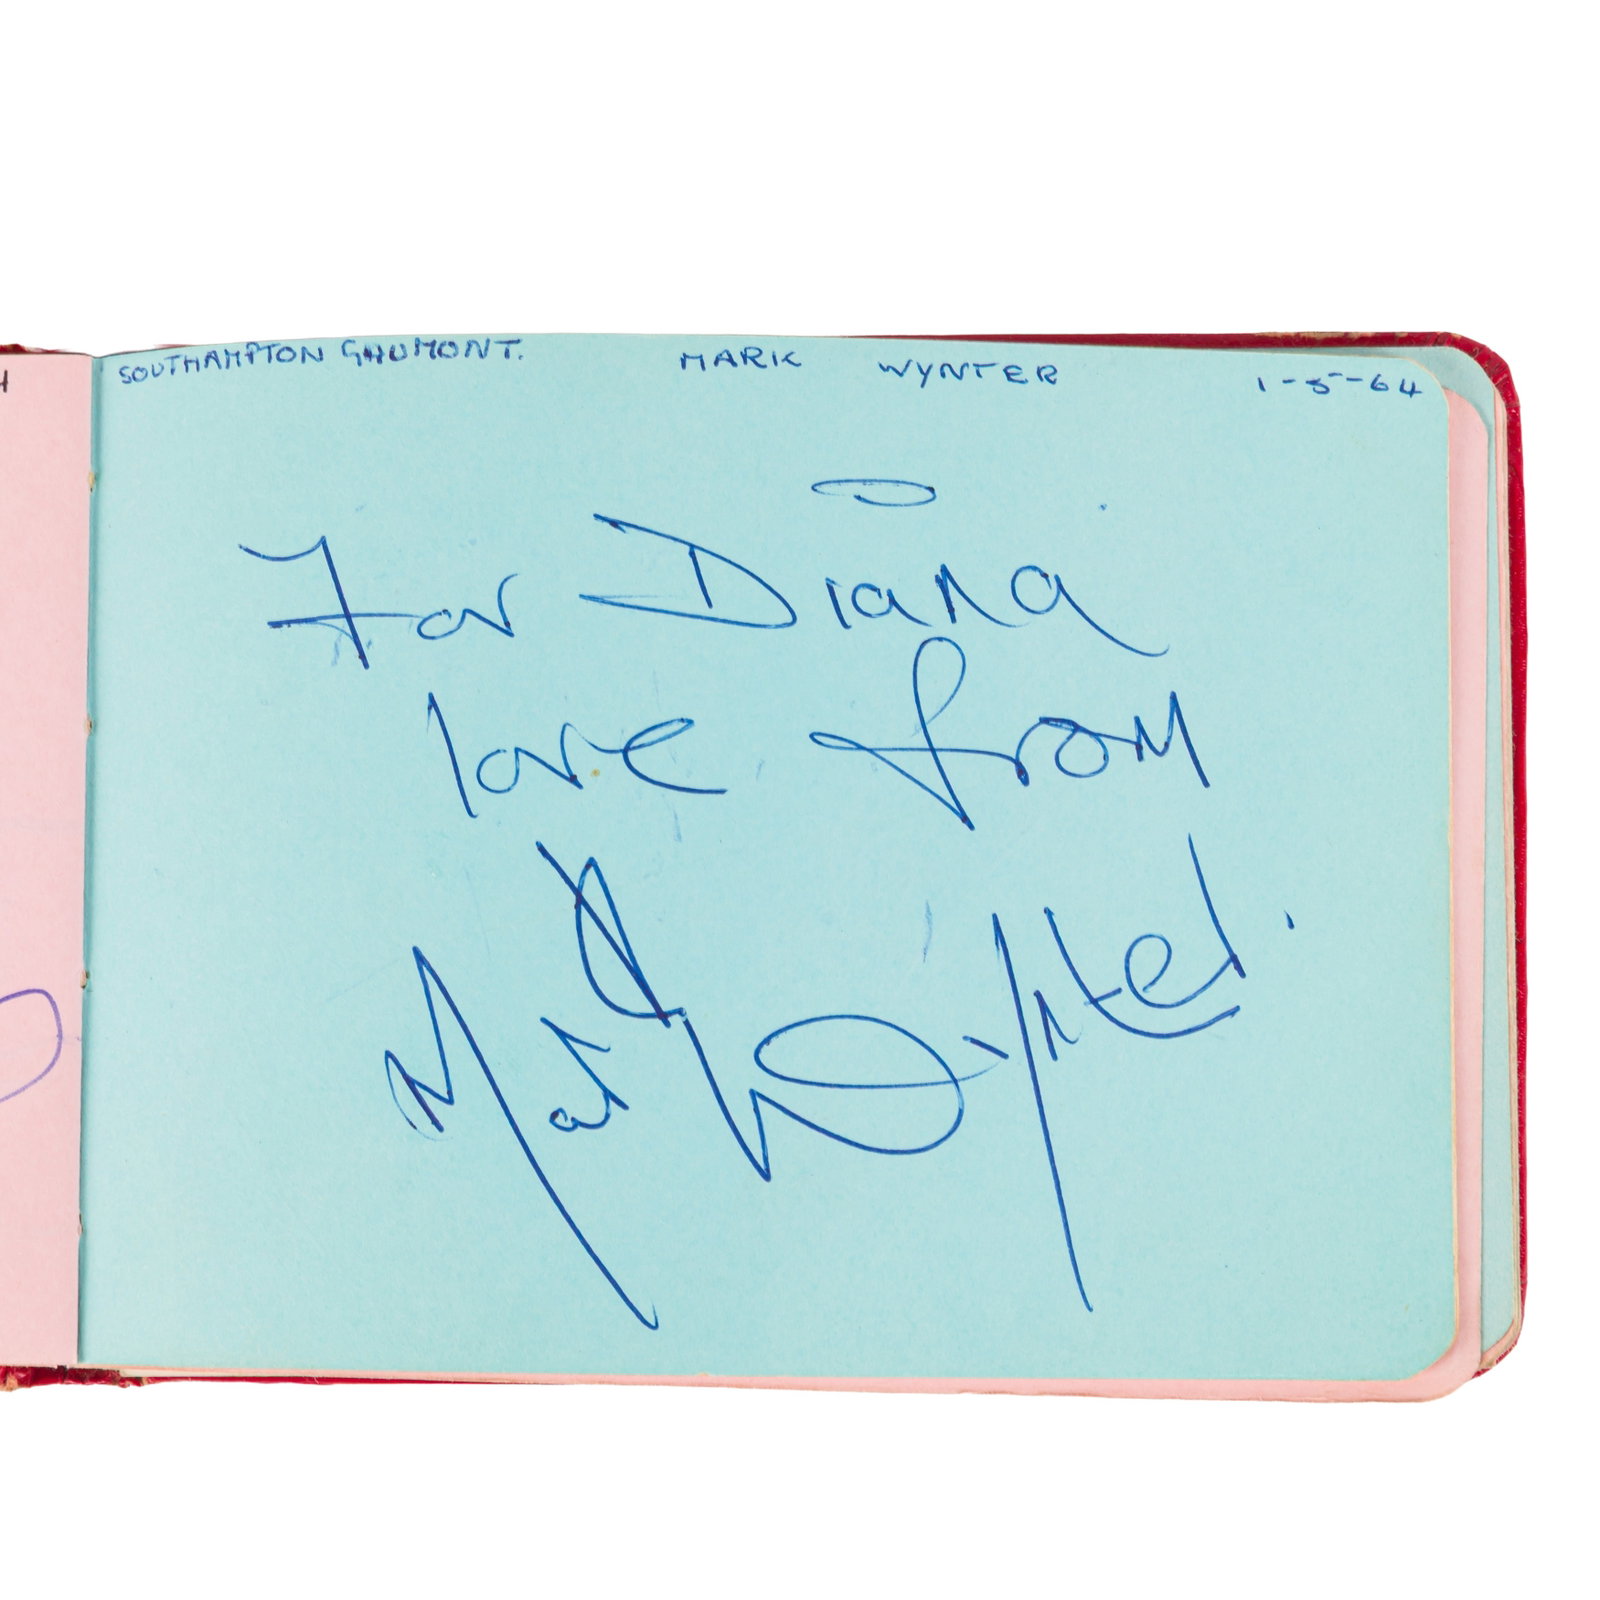 SOUTHAMPTON GAUMONT. MARK WYNTER 1-5-64
For Diana
love from
Mark Wynter.